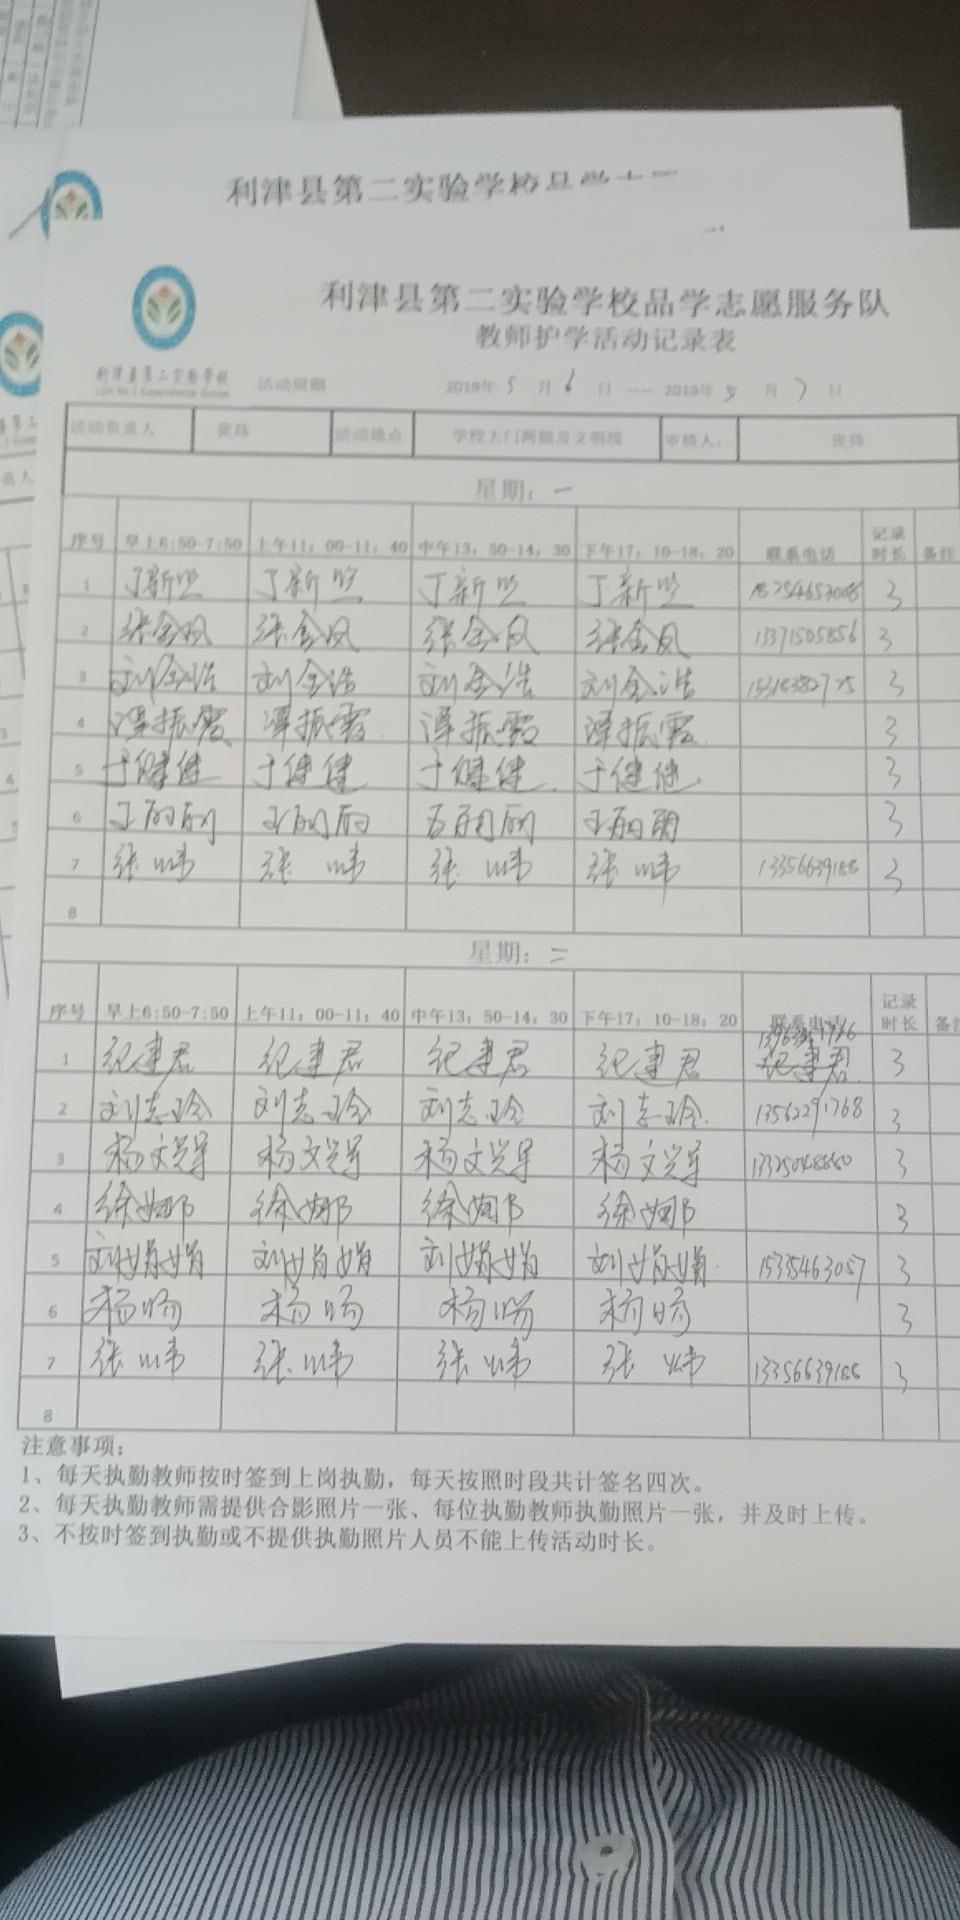 利津县第二实验学校品学
利津县第二实验学校品学志愿服务队
教师护学活动记录表
利津县第二实验学校 活动周期 2019年 5 月 6 日 —— 2019年 5 月 7 日
活动负责人 张炜 活动地点 学校大门两侧及文明线 审核人: 张炜
星期:一
序号 早上6:50-7:50 上午11:00-11:40 中午13:50-14:30 下午17:10-18:20 联系电话 记录时长 备注
1 丁新 丁新 丁新 丁新 3
2 张金凤 张金凤 张金凤 张金凤 13371505856 3
3 刘金浩 刘金浩 刘金浩 刘金浩 3
4 谭振霞 谭振霞 谭振霞 谭振霞 3
5 于健健 于健健 于健健 于健健 3
6 王丽丽 王丽丽 王丽丽 王丽丽 3
7 张炜 张炜 张炜 张炜 13356639188 3
8
星期:二
序号 早上6:50-7:50 上午11:00-11:40 中午13:50-14:30 下午17:10-18:20 联系电话 记录时长 备注
1 纪建君 纪建君 纪建君 纪建君 纪建君 3
2 刘志玲 刘志玲 刘志玲 刘志玲 13562291768 3
3 杨文 杨文 杨文 杨文 3
4 徐娜 徐娜 徐娜 徐娜 3
5 刘娟娟 刘娟娟 刘娟娟 刘娟娟 15335463057 3
6 杨旸 杨旸 杨旸 杨旸 3
7 张炜 张炜 张炜 张炜 13356639188 3
8
注意事项:
1、每天执勤教师按时签到上岗执勤,每天按照时段共计签名四次。
2、每天执勤教师需提供合影照片一张、每位执勤教师执勤照片一张,并及时上传。
3、不按时签到执勤或不提供执勤照片人员不能上传活动时长。